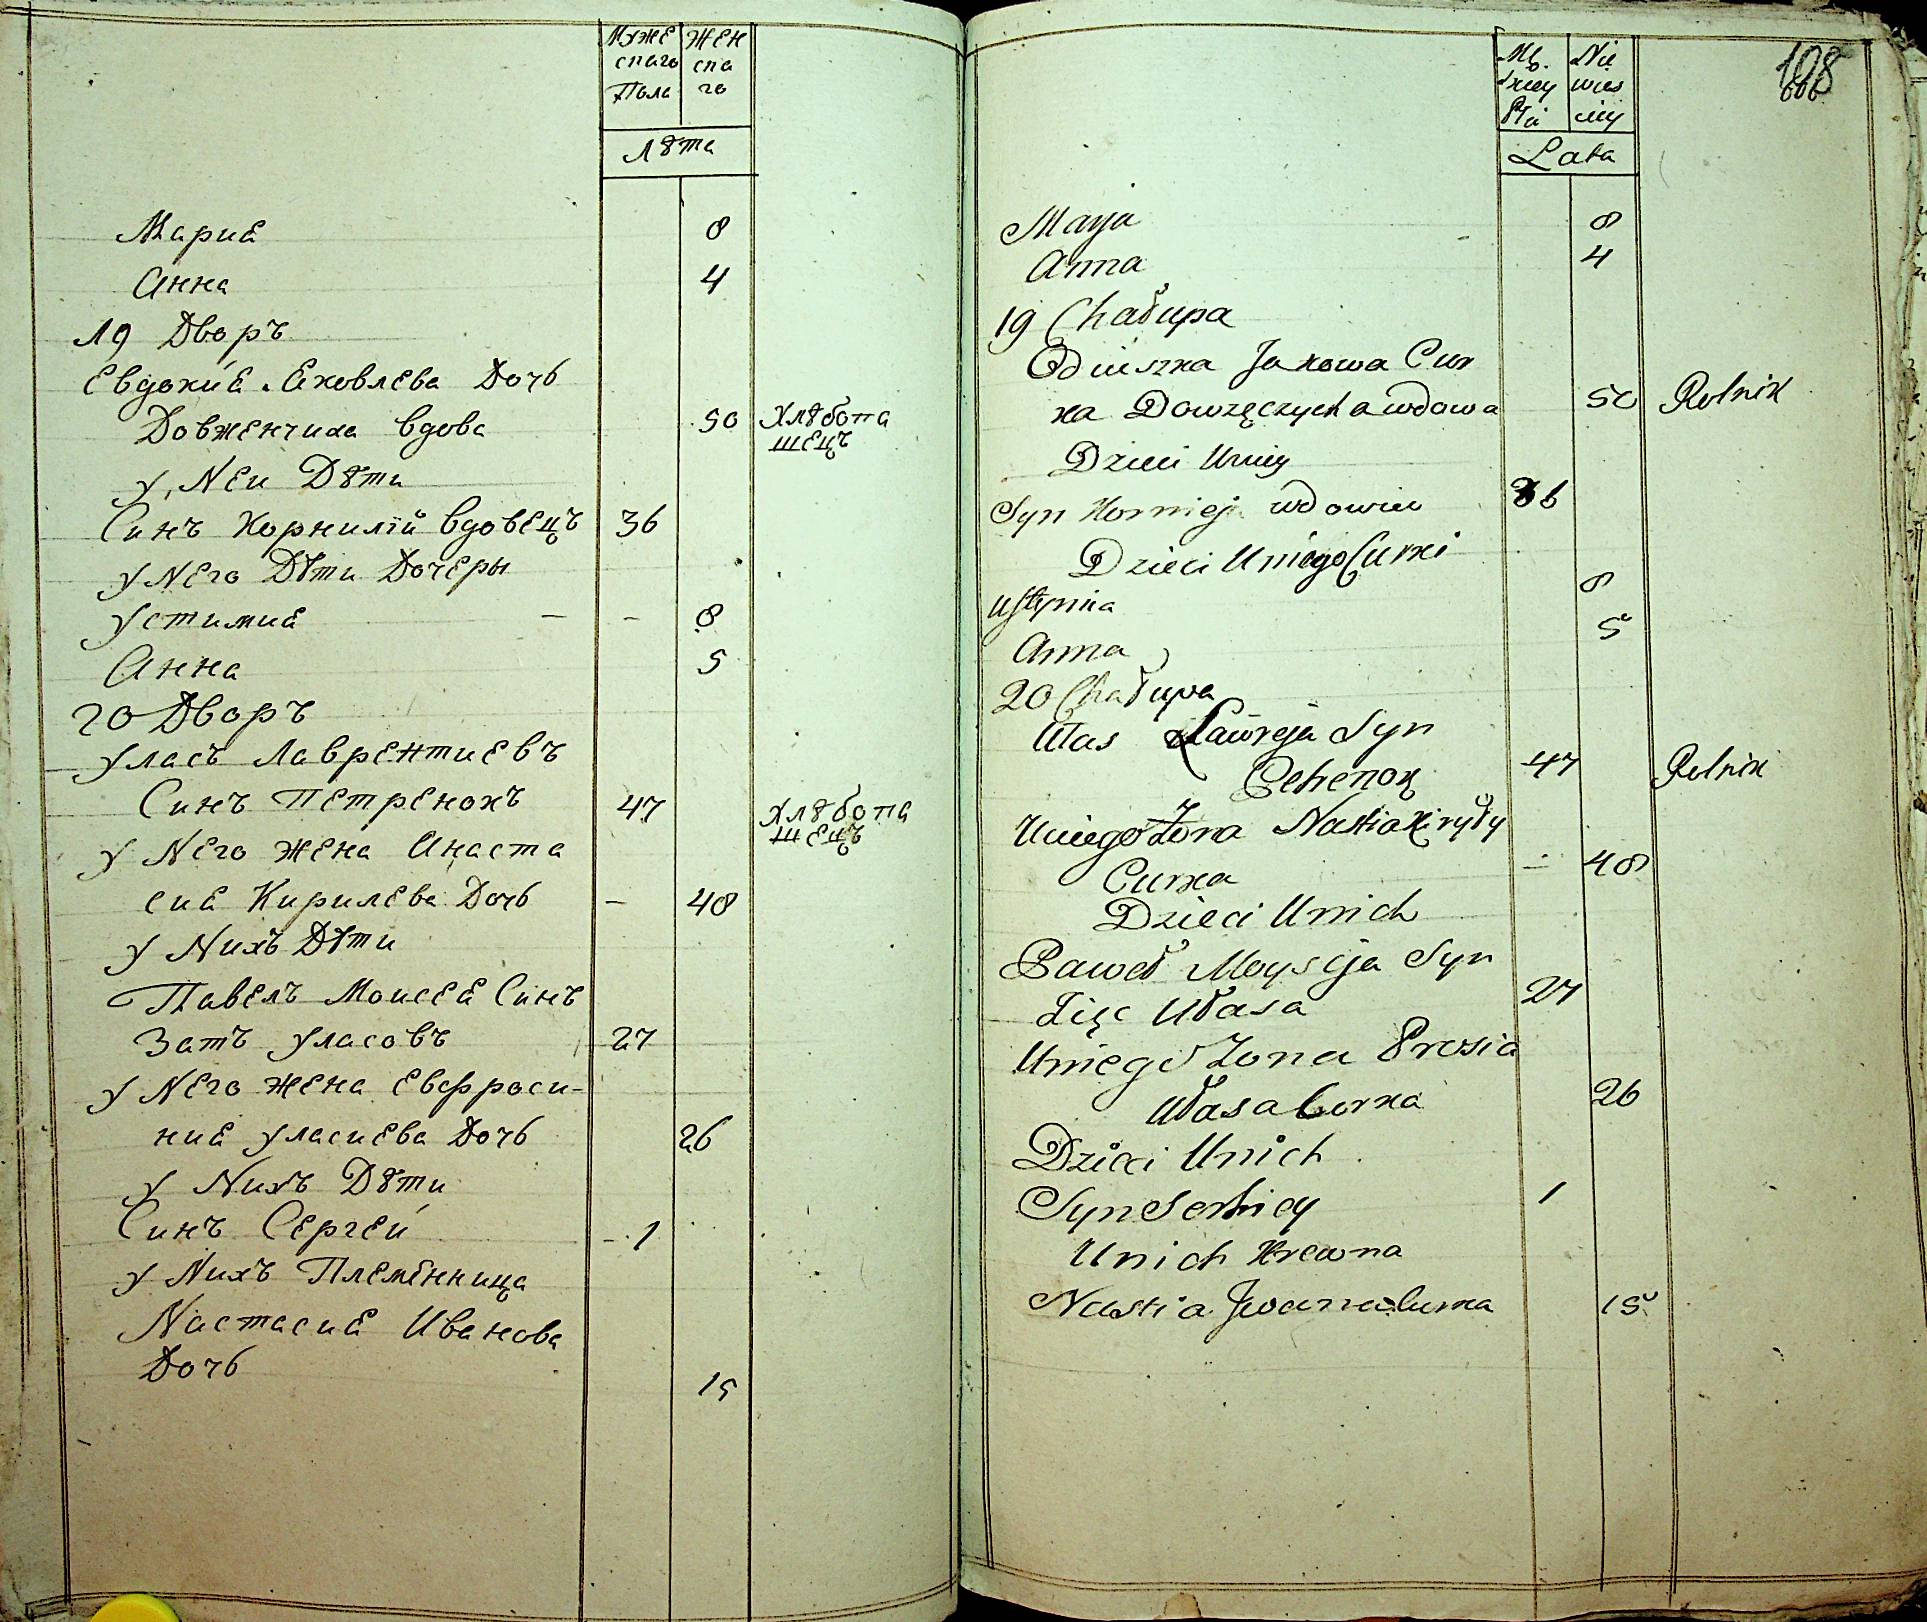 Муже Жен
скаго ска
Пола го
Лѣта
Мариѣ 8
Анна 4
19 Дворъ
Евдокиѣ Яковлева Дочь
Довженчиха вдова 50 Хлѣбопа
шецъ
у Неи Дѣти
Синъ Корнилій вдовецъ 36
у Него Дѣти Дочеры
Устимиѣ 8
Анна 5
20 Дворъ
Уласъ Лаврентиевъ
Синъ Петренокъ 47 Хлѣбопа
шецъ
у Него жена Анаста
сиѣ Кирилева Дочь – 48
у Нихъ Дѣти
Павелъ Моисеѣ Синъ
Зать Уласовъ 27
у Него жена Евфроси-
ниѣ Уласиева Дочь 26
у Нихъ Дѣти
Синъ Сергей 1
у Нихъ Племѣнница
Настасиѣ Иванова
Дочь 15
198
Lata
Marja 8
Anna 4
19 Chałupa
Odiuszka Jakowa Cur
ka wdowa 50 Rolnik
Dzieci Uniey
Syn Korniej wdowiec 36
Dzieci Uniego Curki
Ustynia 8
Anna 5
20 Chałupa
Ułas Ławreja Syn
47 Rolnik
Uniego Żona Nastia Kiryły
Curka 48
Dzieci Unich
Paweł Moysieja Syn
Zięc Ułasa 27
Uniego Żona Prosia
Ułasa Corka 26
Dzieci Unich
Syn Serhiey 1
Unich Krewna
Nastia Jwana Curka 15